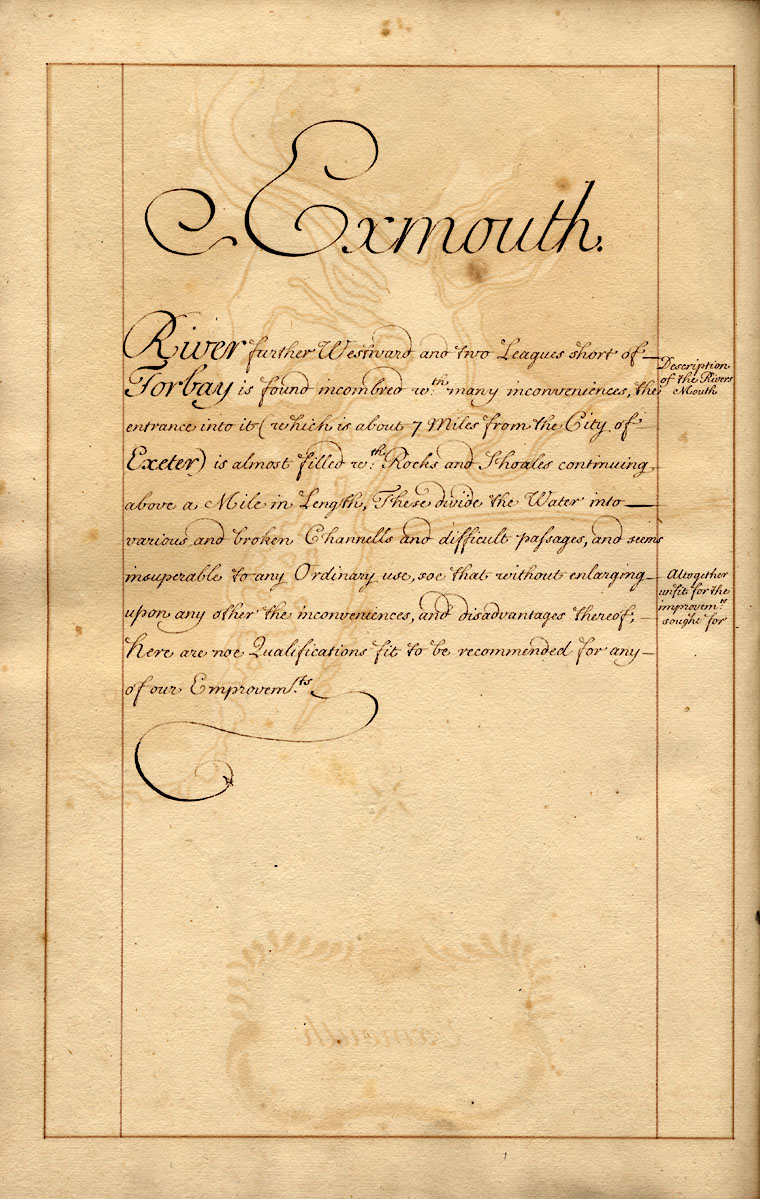 Exmouth.
River further Westward and two Leagues short of
Torbay is found incombred wth. many inconveniences, the
entrance into it (which is about 7 Miles from the City of
Exeter) is almost filled wth. Rocks and Shoales continuing
above a Mile in Length, These divide the Water into
various and broken Channells and difficult passages, and seems
insuperable to any Ordinary use, soe that without enlarging
upon any other the inconveniences, and disadvantages thereof;
here are noe Qualifications fit to be recommended for any
of our Emprovemts.
Description
of the Rivers
Mouth
Altogether
unfit for the
improvemts.
sought for
Exmouth